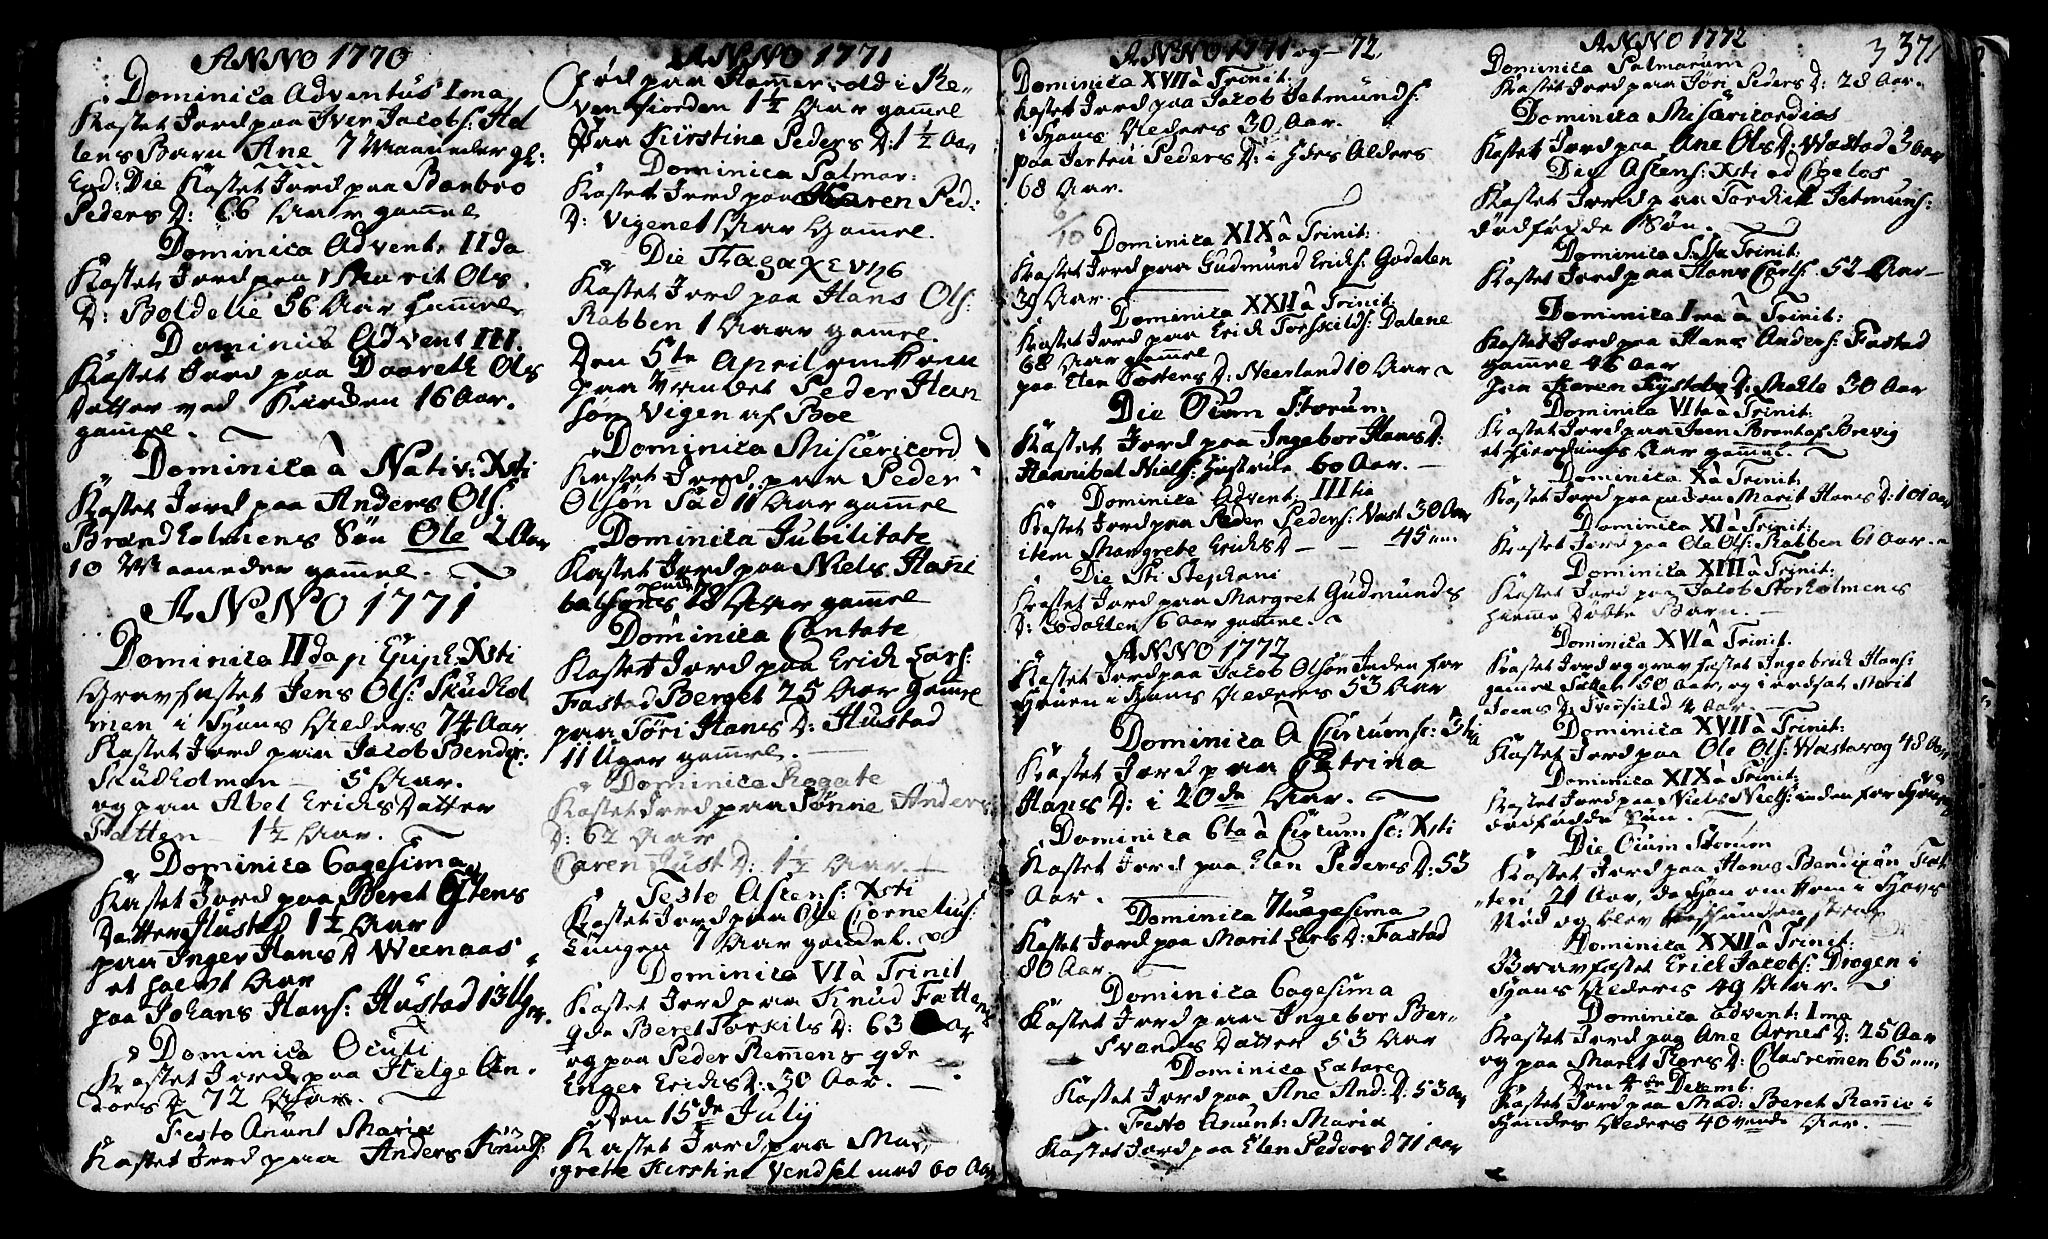 ANNO 1770
Dominica Adventus Ima
Kastet Jord paa Iver Jacobs: Hel
lens Barn Ane 7 Maaneder gl:
Eod: Die Kastet Jord paa Barbro
Peders D: 66 Aar gamel
Dominica Advent. IIda
Kastet Jord paa Marit Ols
D: Boldelie 56 Aar gamel
Dominica Advent III.
Kastet Jord paa Daareth Ols
Datter ved Kirken 16 Aar.
gamel.
Dominica à Nativ: Xsti
Kastet Jord paa Anders Ols:
Brandholmens Søn Ole 2 Aar
10 Maaneder gamel.
ANNO 1771
Dominica IIda p Epiph: Xsti
Gravfæstet Jens Ols: Skudhol
men i Hans Alders 74 Aar
Kastet Jord paa Jacob Bendix:
Skudholmen 5 Aar.
og paa Abel Ericks Datter
Tatten 1½ Aar.
Dominica 6agesima
Kastet Jord paa Beret Ostens
Datter Hustad 1½ Aar
paa Inger Hans D Weenaas
et halvt Aar
paa Johans Hans: Hustad 13 Uger.
Dominica Oculi
Kastet Jord paa Helge An-
ders D 72 Aar.
Festo Anunt Mariæ
Kastet Jord paa Anders Knuds:
ANNO 1771
Fød paa Hamervold i Re-
ven fiorden 1½ Aar gamel
Paa Kirstina Peders D: 1½ Aar
Dominica Palmar:
Kastet Jord paa Karen Ped:
D: Vigenet Aar Gamel.
Die
Kastet Jord paa Hans Ols:
Rabben 1 Aar gamel.
Den 5te April omkom
paa Vandet Peder Han
søn Vigen af Boe
Dominica Misericord
Kastet Jord paa Peder
Olsøn Sad 11 Aar gamel
Dominica Jubilitate
Kastet Jord paa Niels Hani
balsøns 78 Aar gamel
Dominica Cantate
Kastet Jord paa Erich Lars:
Fastad Berget 25 Aar Gamel
paa Tøri Hans D: Hustad
11 Uger gamel.
Dominica Rogate
Kastet Jord paa Sønne Anders
D: 62 Aar
Caren Just D: 1½ Aar
Festo AsCens: Xsti
Kastet Jord paa Ole Cornelius:
Lungen 7 Aar gamel.
Dominica VI à Trinit
Kastet Jord paa Knud Tatten
gde Beret Torkils D: 63 Aar
og paa Peder Remens gde
Enger Ericks D: 30 Aar.
Den 15de Julij
Kastet Jord paa Mar
grete Kirstine Vendsel med 60 Aar
ANNO 1771 og 72.
Dominica XVII à Trinit:
Kastet Jord paa Jacob Jetmunds:
i Hans Alders 30 Aar.
paa Jarten Peders D: i hdes Alders
68 Aar.
6/10
Dominica XIX à Trinit:
Kastet Jord paa Gudmund Ericks: Godalen
39 Aar
Dominica XXII à Trinit:
Kastet Jord paa Erick Torskilds: Dalene
68 Aar gamel
paa Elen Tostens D: Neerland 10 Aar
Die Oium Storum
Kastet Jord paa Ingebor Hans D:
Hannibal Niels: Hustrue 60 Aar.
Dominica Advent: IIItia
Kastet Jord paa Peder Peders: Vast 30 Aar
item Margrete Ericks D 45
Die Sti Stephani
Kastet Jord paa Margret Gudmunds
D: Godalen 6 Aar gamel.
ANNO 1772
Kastet Jord paa Jacob Olsøn Inden for
Hans Alders 53 Aar
Dominica à Circumsc: 3tia
Kastet Jord paa Catrina
Hans D: i 20de Aar.
Dominica 6ta à Circumsc: Xsti
Kastet Jord paa Elen Peders D: 53
Aar.
Dominica 7tuagesima
Kastet Jord paa Marit Lars D: Fastad
80 Aar
Dominica 6agesima
Kastet Jord paa Ingebor Ber-
Svends Datter 53 Aar
Dominica Lætare
Kastet Jord paa Ane And: D: 53 Aar
Festo Anunt: Mariæ
Kastet Jord paa Elen Peders D 71 Aar
ANNO 1772
337
Dominica Palmarum
Kastet Jord paa Jøri Peders D: 28 Aar.
Dominica Misericordias
Kastet Jord paa Ane Ols D: Wastad 3 Aar
Die Ascens: Xsti ad Coelos
Kastet Jord paa Tordick Jetmuns:
dødfødde Søn.
Dominica Trinit:
Kastet Jord paa Hans Carls: 52 Aar
Dominica Ima à Trinit:
Kastet Jord paa Hans Anders: Fastad
gamel 46 Aar
paa Karen D: Malle 30 Aar
Dominica VIta à Trinit:
Kastet Jord paa Iven Brevig
et fierdings Aar gamel.
Dominica X à Trinit:
Kastet Jord paa enken Marit Hans D: 101 Aar
Dominica XI à Trinit:
Kastet Jord paa Ole Ols: Rabben 61 Aar.
Dominica XIII à Trinit:
Kastet Jord paa Jacob Storholmens
hieme Døbte Barn.
Dominica XVI à Trinit:
Kastet Jord og grav fæstet Ingebrick Hans:
gamel Tatten 50 Aar, og i ordsat Marit
Joens D: 4 Aar.
Dominica XVII à Trinit:
Kastet Jord paa Ole Ols: 48 Aar
Dominica XIX à Trinit:
Kastet Jord paa Niels Niels: inden for
dødfødde Søn.
Die Oium Storum
Kastet Jord paa Hans Bendixøn Tat
ten 21 Aar, da han omkom i Havs
Nød og blev
Dominica XXII à Trinit:
Gravfæstet Erick Jacobs: Drogen i
Hans Alders 49 Aar.
Dominica advent: Ima
Kastet Jord paa Ane Arnes D: 25 Aar
og paa Marit D: Claremen 65
Den 4de Decemb.
Kastet Jord paa Mad: Beret i
hendes Alders 40 Aar.